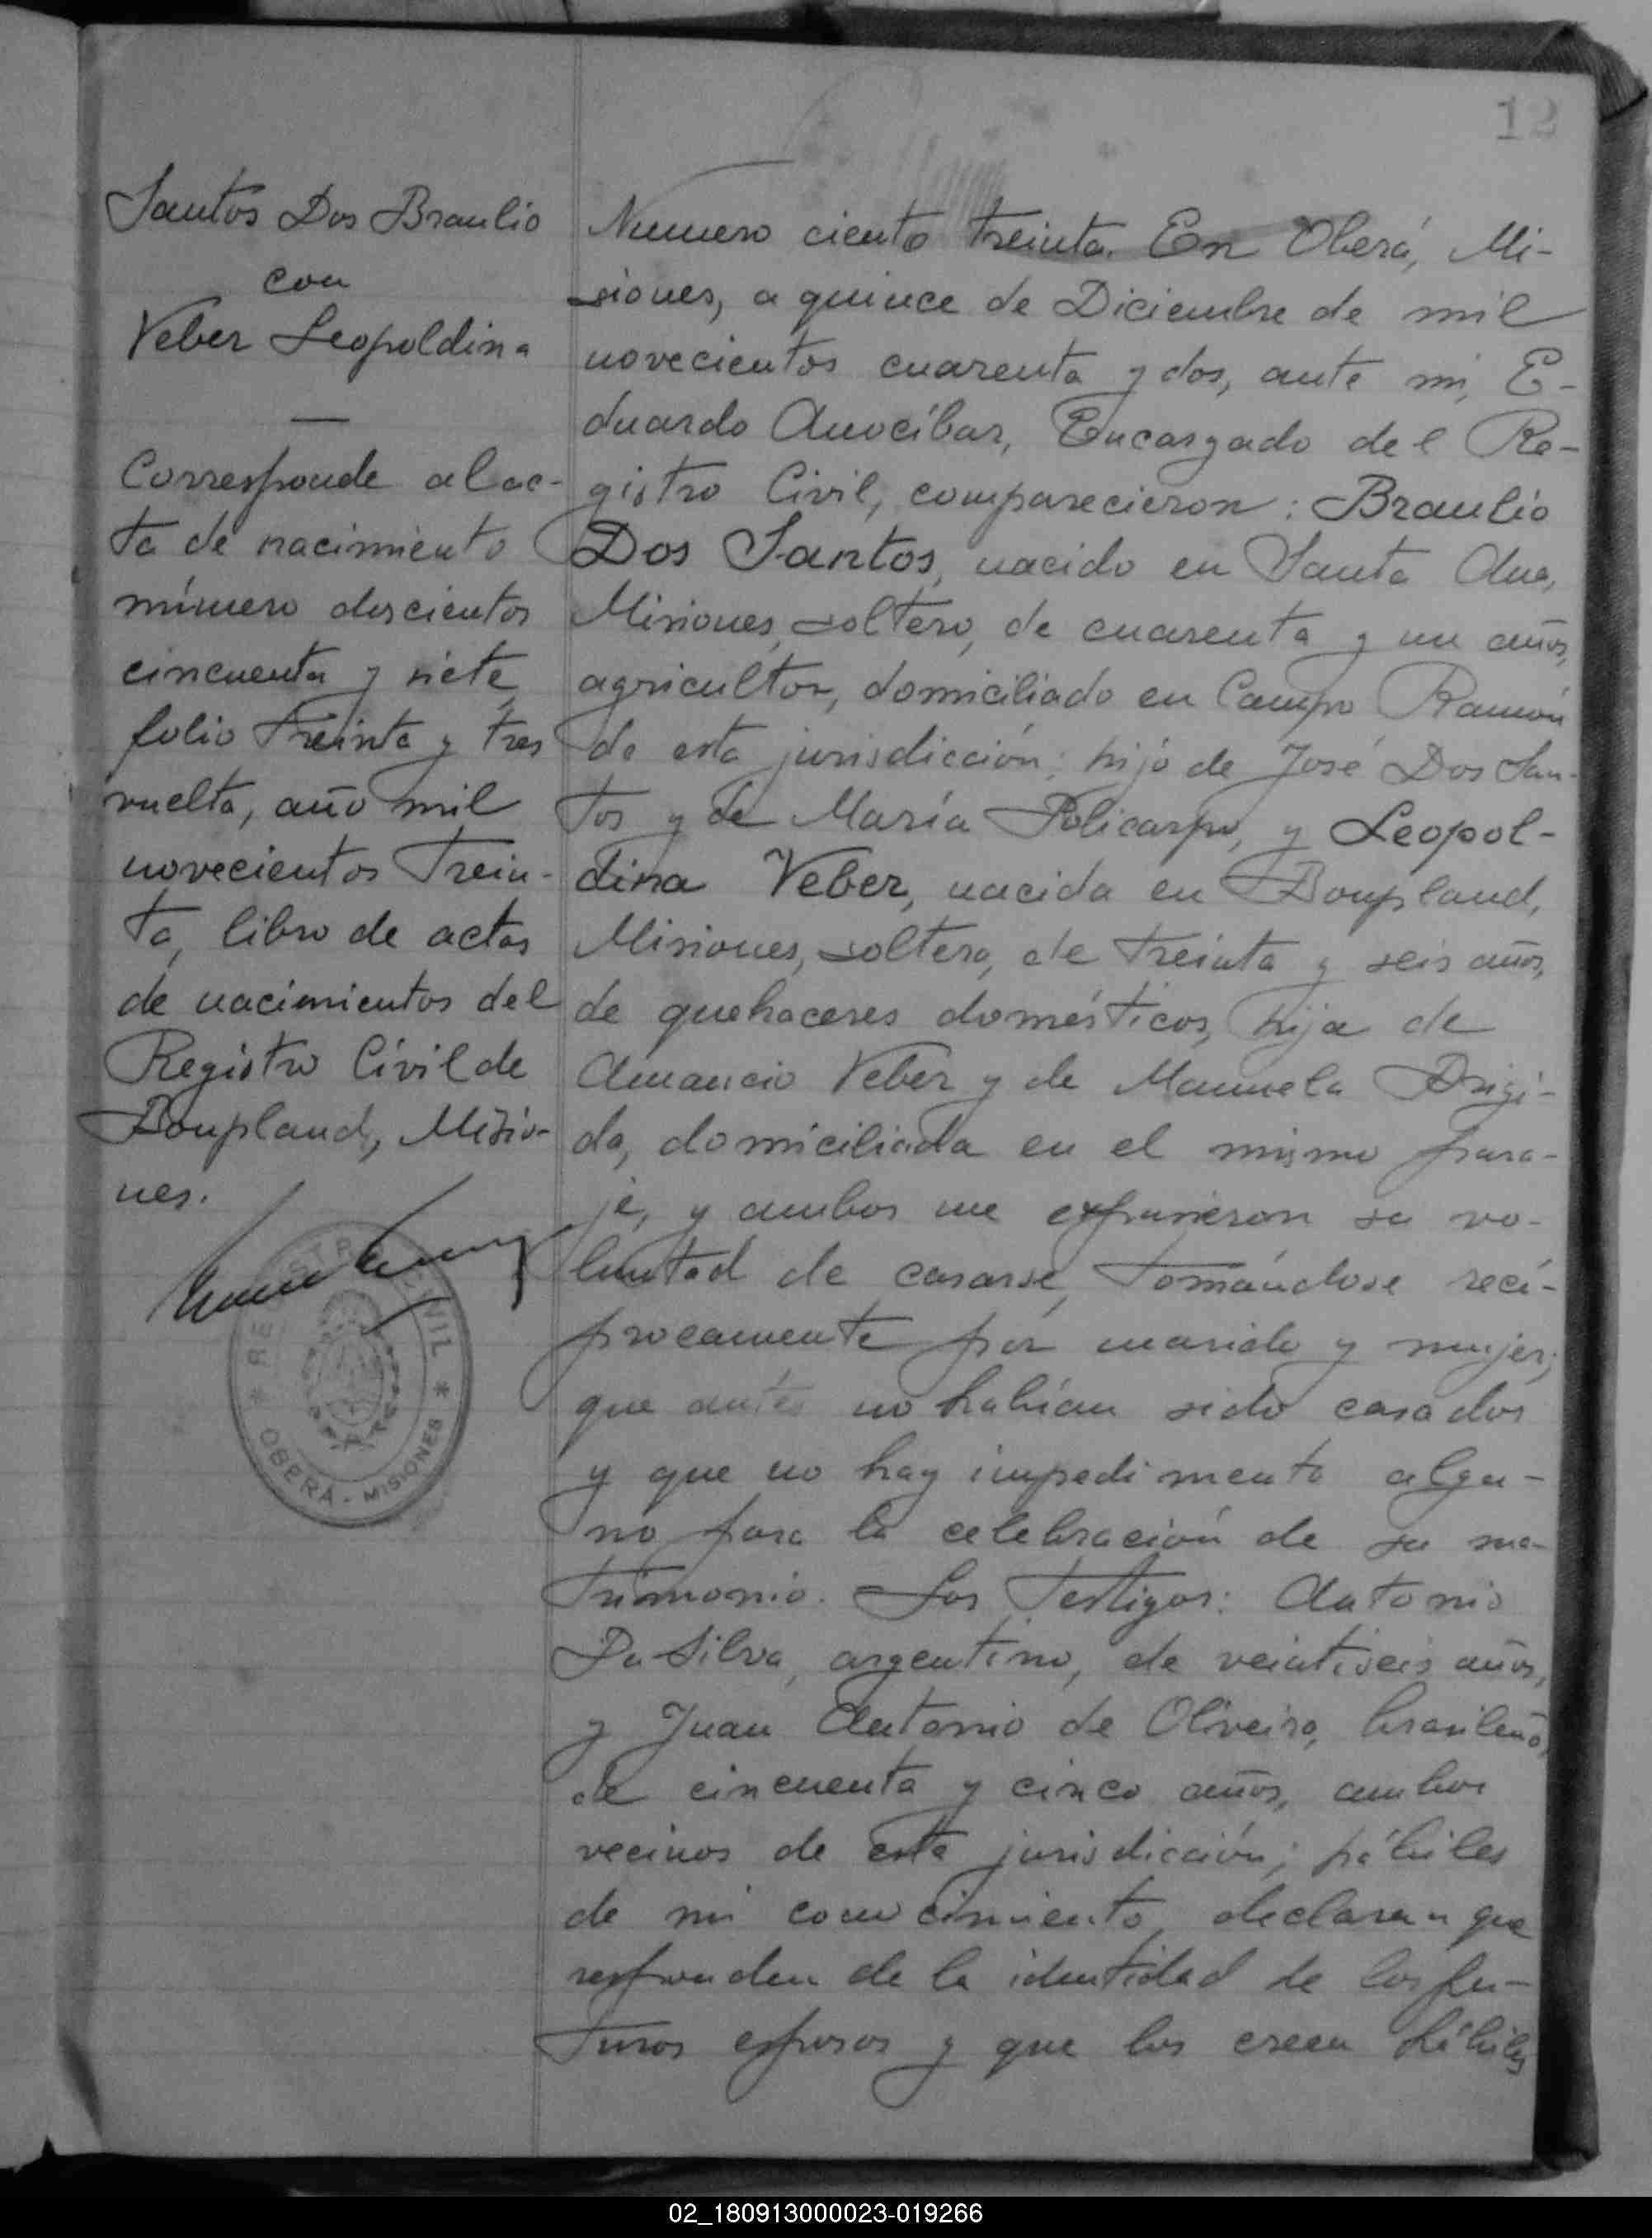 12
Santos Dos Braulio
con
Veber Leopoldina
Corresponde al ac-
ta de nacimiento
número doscientos
cincuenta y siete
folio treinta y tres
vuelta, año mil
novecientos trein-
ta, libro de actas
de nacimientos del
Registro Civil de
Bonpland, Misio-
nes.
REGISTRO CIVIL
* OBERA - MISIONES *
Numero ciento treinta. En Oberá, Mi-
siones, a quince de Diciembre de mil
novecientos cuarenta y dos, ante mi, E-
duardo Anocíbar, Encargado del Re-
gistro Civil, comparecieron: Braulio
Dos Santos, nacido en Santa Ana,
Misiones, soltero, de cuarenta y un años,
agricultor, domiciliado en Campo Ramón
de esta jurisdicción; hijo de José Dos San-
tos y de María Policarpo, y Leopol-
dina Veber, nacida en Bonpland,
Misiones, soltera, de treinta y seis años,
de quehaceres domésticos, hija de
Amancio Veber y de Manuela Brigi-
da, domiciliada en el mismo para-
je, y ambos me expusieron su vo-
luntad de casarse, tomándose recí-
procamente por marido y mujer;
que antes no habían sido casados
y que no hay impedimento algu-
no para la celebración de su ma-
trimonio. Los testigos: Antonio
Da Silva, argentino, de veintiseis años,
y Juan Antonio de Oliveira, brasileño,
de cincuenta y cinco años, ambos
vecinos de esta jurisdicción; hábiles
de mi conocimiento, declaran que
responden de la identidad de los fu-
turos esposos y que los creen hábiles
02_180913000023-019266